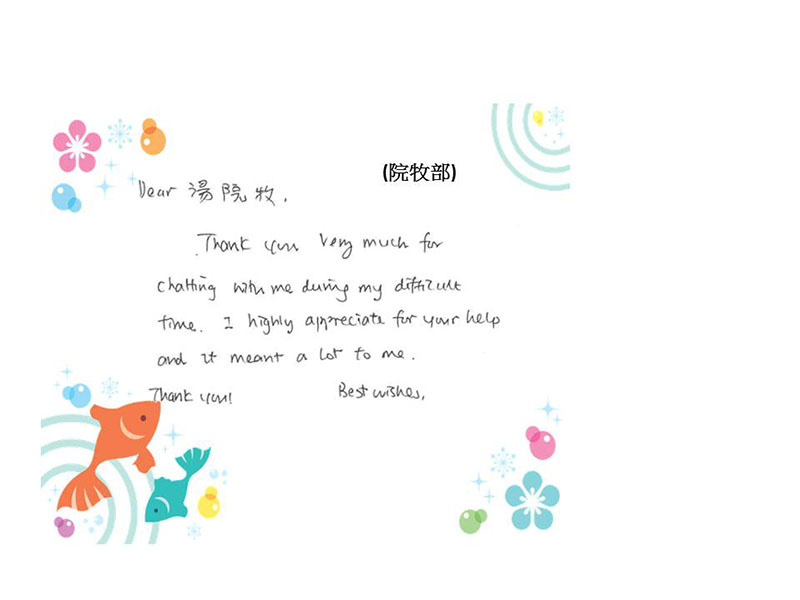 (院牧部)
Dear 湯院牧,
Thank you very much for
chatting with me during my difficult
time. I highly appreciate for your help
and it meant a lot to me.
Thank you!
Best wishes,